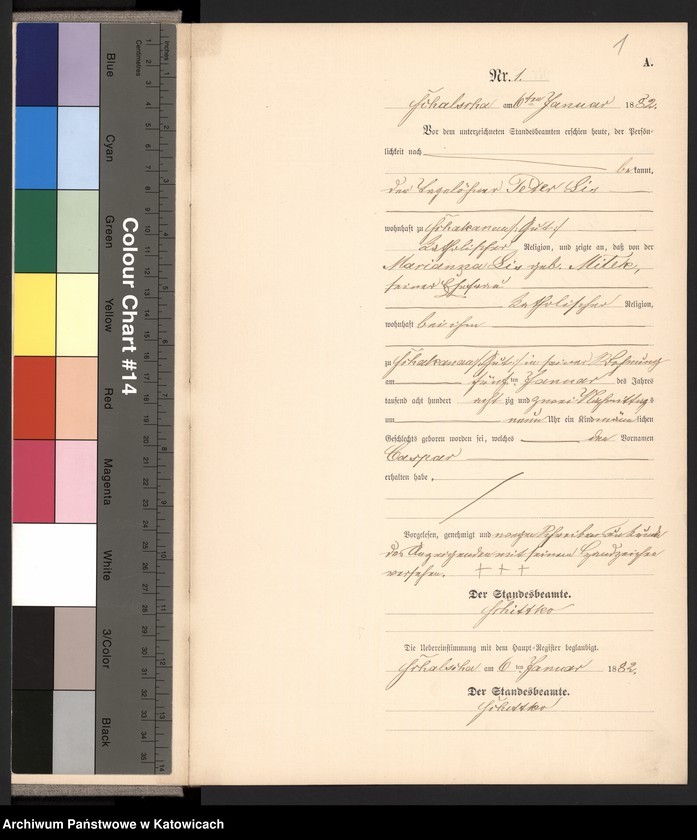 1
A.
Nr. 1.
am 6ten Januar 1882.
Vor dem unterzeichneten Standesbeamten erschien heute, der Persön-
lichkeit nach
bekannt,
der Tagelöhner Peter Lis
wohnhaft zu
katholischer Religion, und zeigte an, daß von der
Marianna Lis geb. Mitek,
seiner Ehefrau
katholischer Religion,
wohnhaft bei ihm
zu in seiner Wohnung
am fünften Januar des Jahres
tausend acht hundert achtzig und zwei Nachmittags
um neun Uhr ein Kind männlichen
Geschlechts geboren worden sei, welches den Vornamen
Caspar
erhalten habe.
Vorgelesen, genehmigt und wegen Schreibensunkunde
des Anzeigenden mit seinem Handzeichen
versehen. + + +
Der Standesbeamte.
Die Uebereinstimmung mit dem Haupt-Register beglaubigt.
am 6ten Januar 1882.
Der Standesbeamte.
Colour Chart #14
Blue
Cyan
Green
Yellow
Red
Magenta
White
3/Color
Black
Centimetres
Inches
Archiwum Państwowe w Katowicach